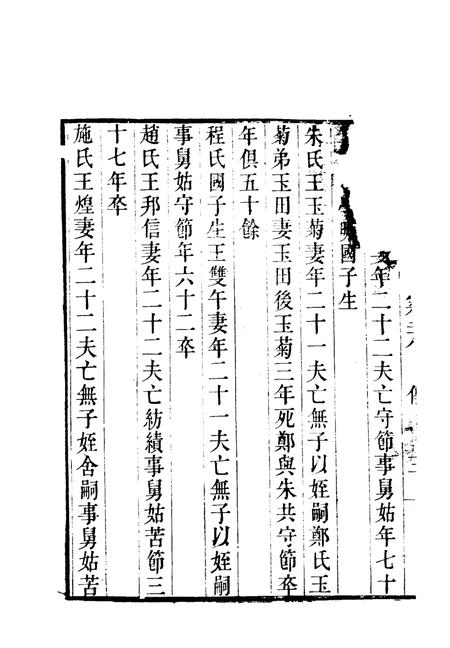 年二十二夫亡守節事舅姑年七十
國子生
朱氏王玉菊妻年二十一夫亡無子以姪嗣鄭氏玉
菊弟玉田妻玉田後玉菊三年死鄭與朱共守節卒
年俱五十餘
程氏國子生王雙午妻年二十一夫亡無子以姪嗣
事舅姑守節年六十二卒
趙氏王邦信妻年二十二夫亡紡績事舅姑苦節三
十七年卒
施氏王煌妻年二十二夫亡無子姪舍嗣事舅姑苦